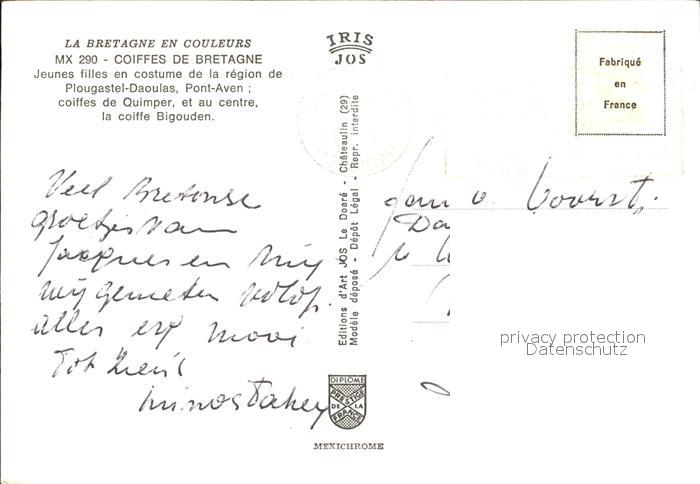 LA BRETAGNE EN COULEURS
MX 290 - COIFFES DE BRETAGNE
Jeunes filles en costume de la région de
Plougastel-Daoulas, Pont-Aven ;
coiffes de Quimper, et au centre,
la coiffe Bigouden.
IRIS
JOS
Fabriqué
en
France
Editions d'Art JOS Le Doaré - Châteaulin (29)
Modèle déposé - Dépôt Légal - Repr. interdite
Veel Bretonse
groetjes van
Jacques en mij
wij genieten volop.
alles erg mooi
Tot ziens
DIPLOME
PRESTIGE
DE LA
FRANCE
MEXICHROME
v. Voorst
Da
privacy protection
Datenschutz